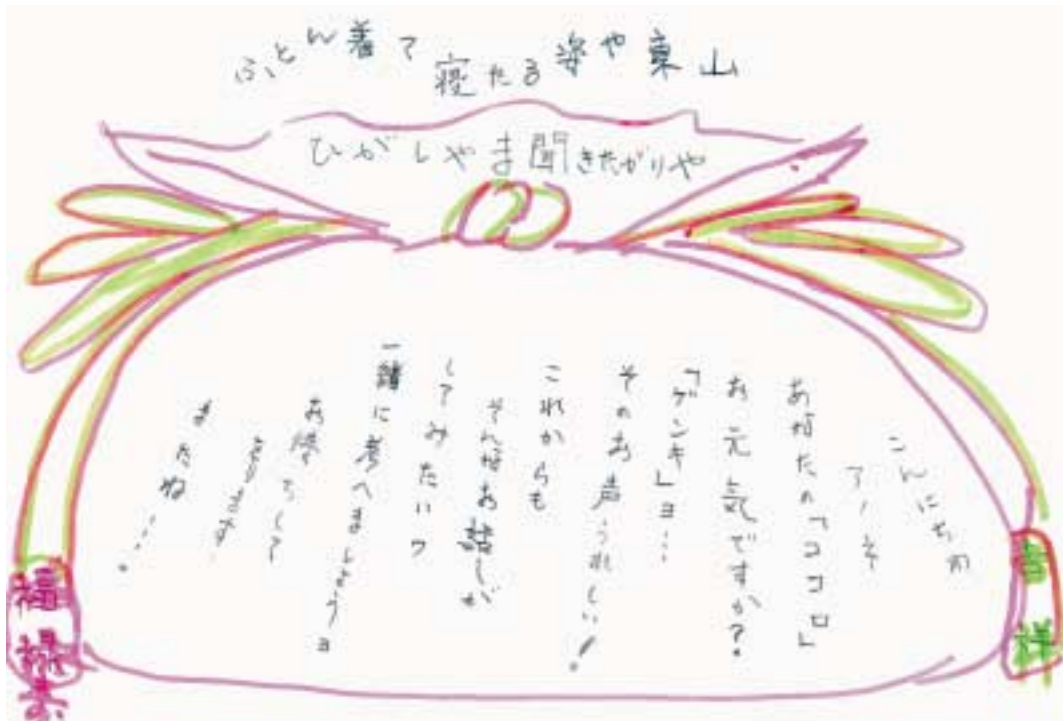 ふとん着て寝たる姿や東山
ひがしやま聞きたがりや
こんにちわ
アノネ
あなたの「ココロ」
お元気ですか？
「ゲンキ」ョ…
そのお声うれしい！
これからも
そんなお話しが
してみたいワ
一緒に考へましょうョ
お待ちして
またね…。
吉祥
福禄寿